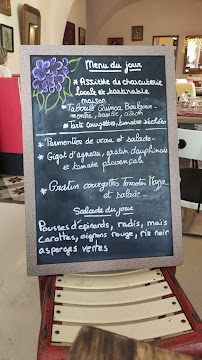 Menu du jour
* Assiette de charcuterie
locale et tartinable
maison
* Taboulé Quinoa Boulgour
menthe, basilic,
* Tarte courgettes, tomates séchées
* Parmentier de veau et salade
* Gigot d'agneau, gratin dauphinois
et tomate provençale
* Gratin courgettes Tomate
et salade
Salade du jour
Pousses d'épinards, radis, maïs
carottes, oignons rouge, riz noir
asperges vertes